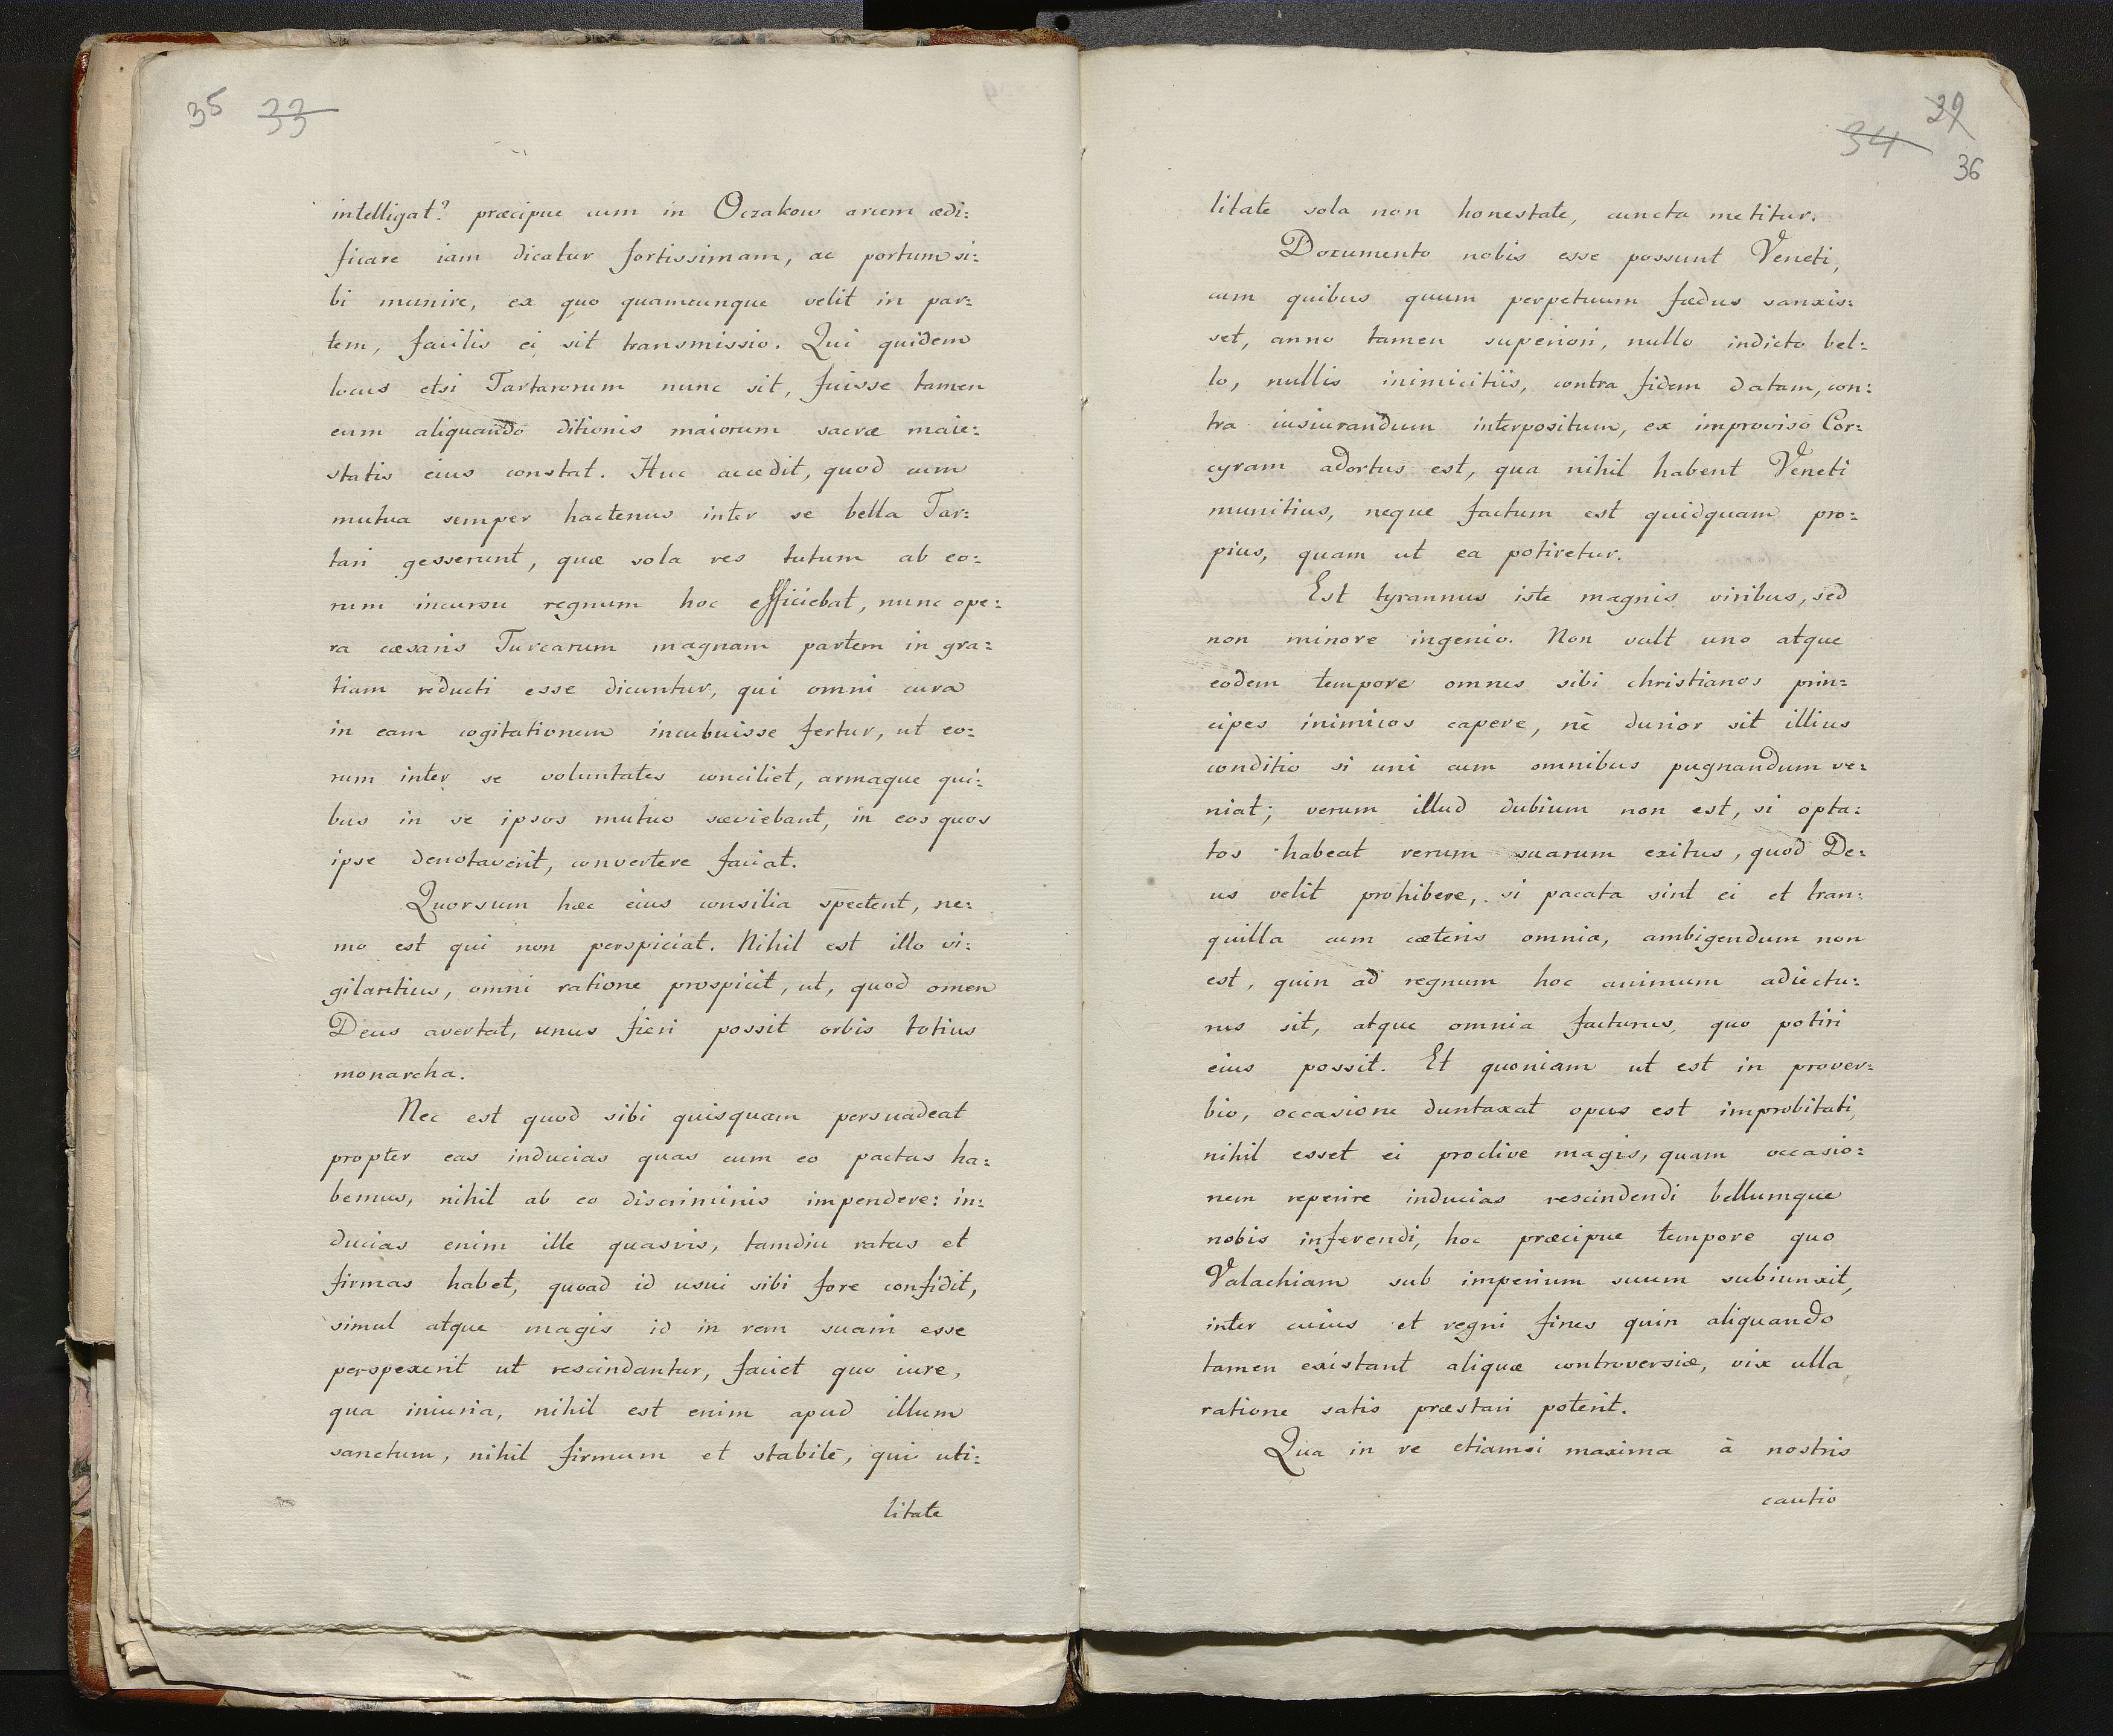 35 33
intelligat? præcipue cum in Oczakow arcem ædi:
ficare iam dicatur fortissimam, ac portum si:
bi munire, ex quo quamcunque velit in par:
tem, facilis ei sit transmissio. Qui quidem
locus etsi Tartarorum nunc sit, fuisse tamen
eum aliquando ditionis maiorum sacræ maie:
statis eius constat. Huc accedit, quod cum
mutua semper hactenus inter se bella Tar:
tari gesserunt, quæ sola res tutum ab eo:
rum incursu regnum hoc efficiebat, nunc ope:
ra cæsaris Turcarum magnam partem in gra:
tiam reducti esse dicuntur, qui omni cura
in eam cogitationem incubuisse fertur, ut eo:
rum inter se voluntates conciliet, armaque qui:
bus in se ipsos mutuo sæviebant, in eos quos
ipse denotaverit, convertere faciat.
Quorsum hæc eius consilia spectent, ne:
mo est qui non perspiciat. Nihil est illo vi:
gilantius, omni ratione prospicit, ut, quod omen
Deus avertat, unus fieri possit orbis totius
monarcha.
Nec est quod sibi quisquam persuadeat
propter eas inducias quas cum eo pactas ha:
bemus, nihil ab eo discriminis impendere: in:
ducias enim ille quasvis, tamdiu ratas et
firmas habet, quoad id usui sibi fore confidit,
simul atque magis id in rem suam esse
perspexerit ut rescindantur, faciet quo iure,
qua iniuria, nihil est enim apud illum
sanctum, nihil firmum et stabile, qui uti:
litate
39
34
36
litate sola non honestate, cuncta metitur.
Documento nobis esse possunt Veneti,
cum quibus quum perpetuum fædus sanxis:
set, anno tamen superiori, nullo indicto bel:
lo, nullis inimicitiis, contra fidem datam, con:
tra iusiurandum interpositum, ex improviso Cor:
cyram adortus est, qua nihil habent Veneti
munitius, neque factum est quidquam pro:
pius, quam ut ea potiretur.
Est tyrannus iste magnis viribus, sed
non minore ingenio. Non vult uno atque
eodem tempore omnes sibi christianos prin:
cipes inimicos capere, nè durior sit illius
conditio si uni cum omnibus pugnandum ve:
niat; verum illud dubium non est, si opta:
tos habeat rerum suarum exitus, quod De:
us velit prohibere, si pacata sint ei et tran:
quilla cum cæteris omnia, ambigendum non
est, quin ad regnum hoc animum adiectu:
rus sit, atque omnia facturus, quo potiri
eius possit. Et quoniam ut est in prover:
bio, occasione duntaxat opus est improbitati,
nihil esset ei proclive magis, quam occasio:
nem reperire inducias rescindendi bellumque
nobis inferendi, hoc præcipue tempore quo
Valachiam sub imperium suum subiunxit,
inter cuius et regni fines quin aliquando
tamen existant aliquæ controversiæ, vix ulla
ratione satis præstari poterit.
Qua in re etiamsi maxima à nostris
cautio